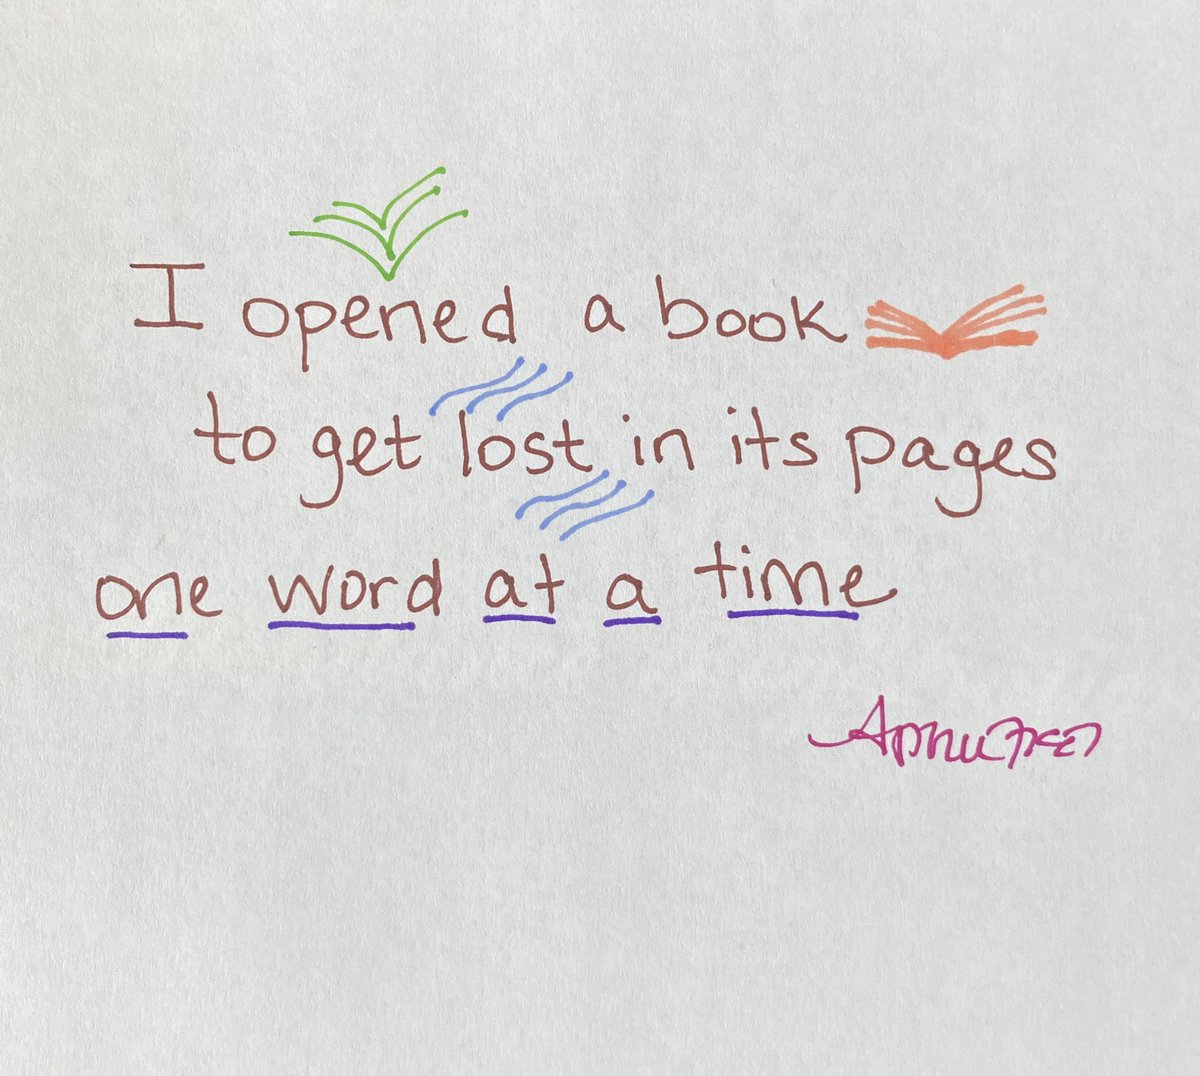 I opened a book
to get lost in its pages
one word at a time